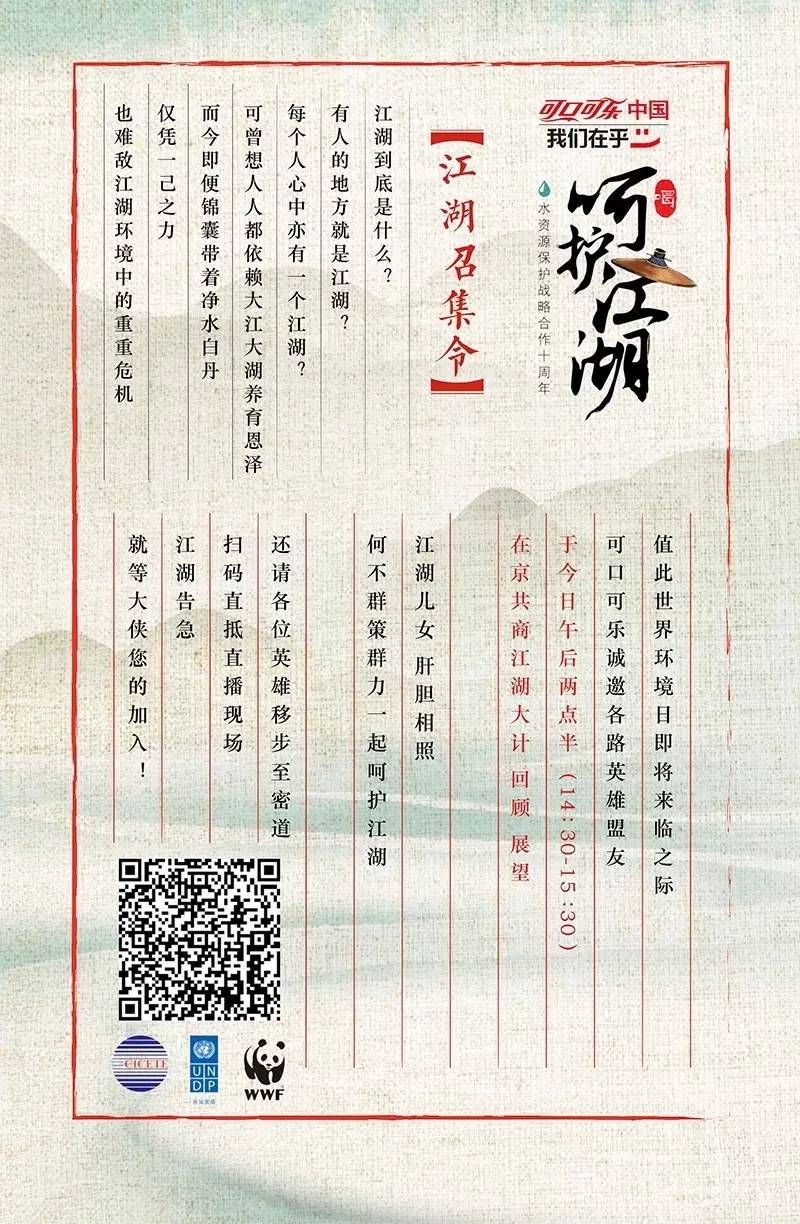 可口可乐中国
我们在乎
喝
呵护江湖
水资源保护战略合作十周年
【江湖召集令】
江湖到底是什么？
有人的地方就是江湖？
每个人心中亦有一个江湖？
可曾想人人都依赖大江大湖养育恩泽
而今即便锦囊带着净水白丹
仅凭一己之力
也难敌江湖环境中的重重危机
值此世界环境日即将来临之际
可口可乐诚邀各路英雄盟友
于今日午后两点半（14:30-15:30）
在京共商江湖大计 回顾 展望
江湖儿女 肝胆相照
何不群策群力一起呵护江湖
还请各位英雄移步至密道
扫码直抵直播现场
江湖告急
就等大侠您的加入！
CICETE
UN
DP
WWF